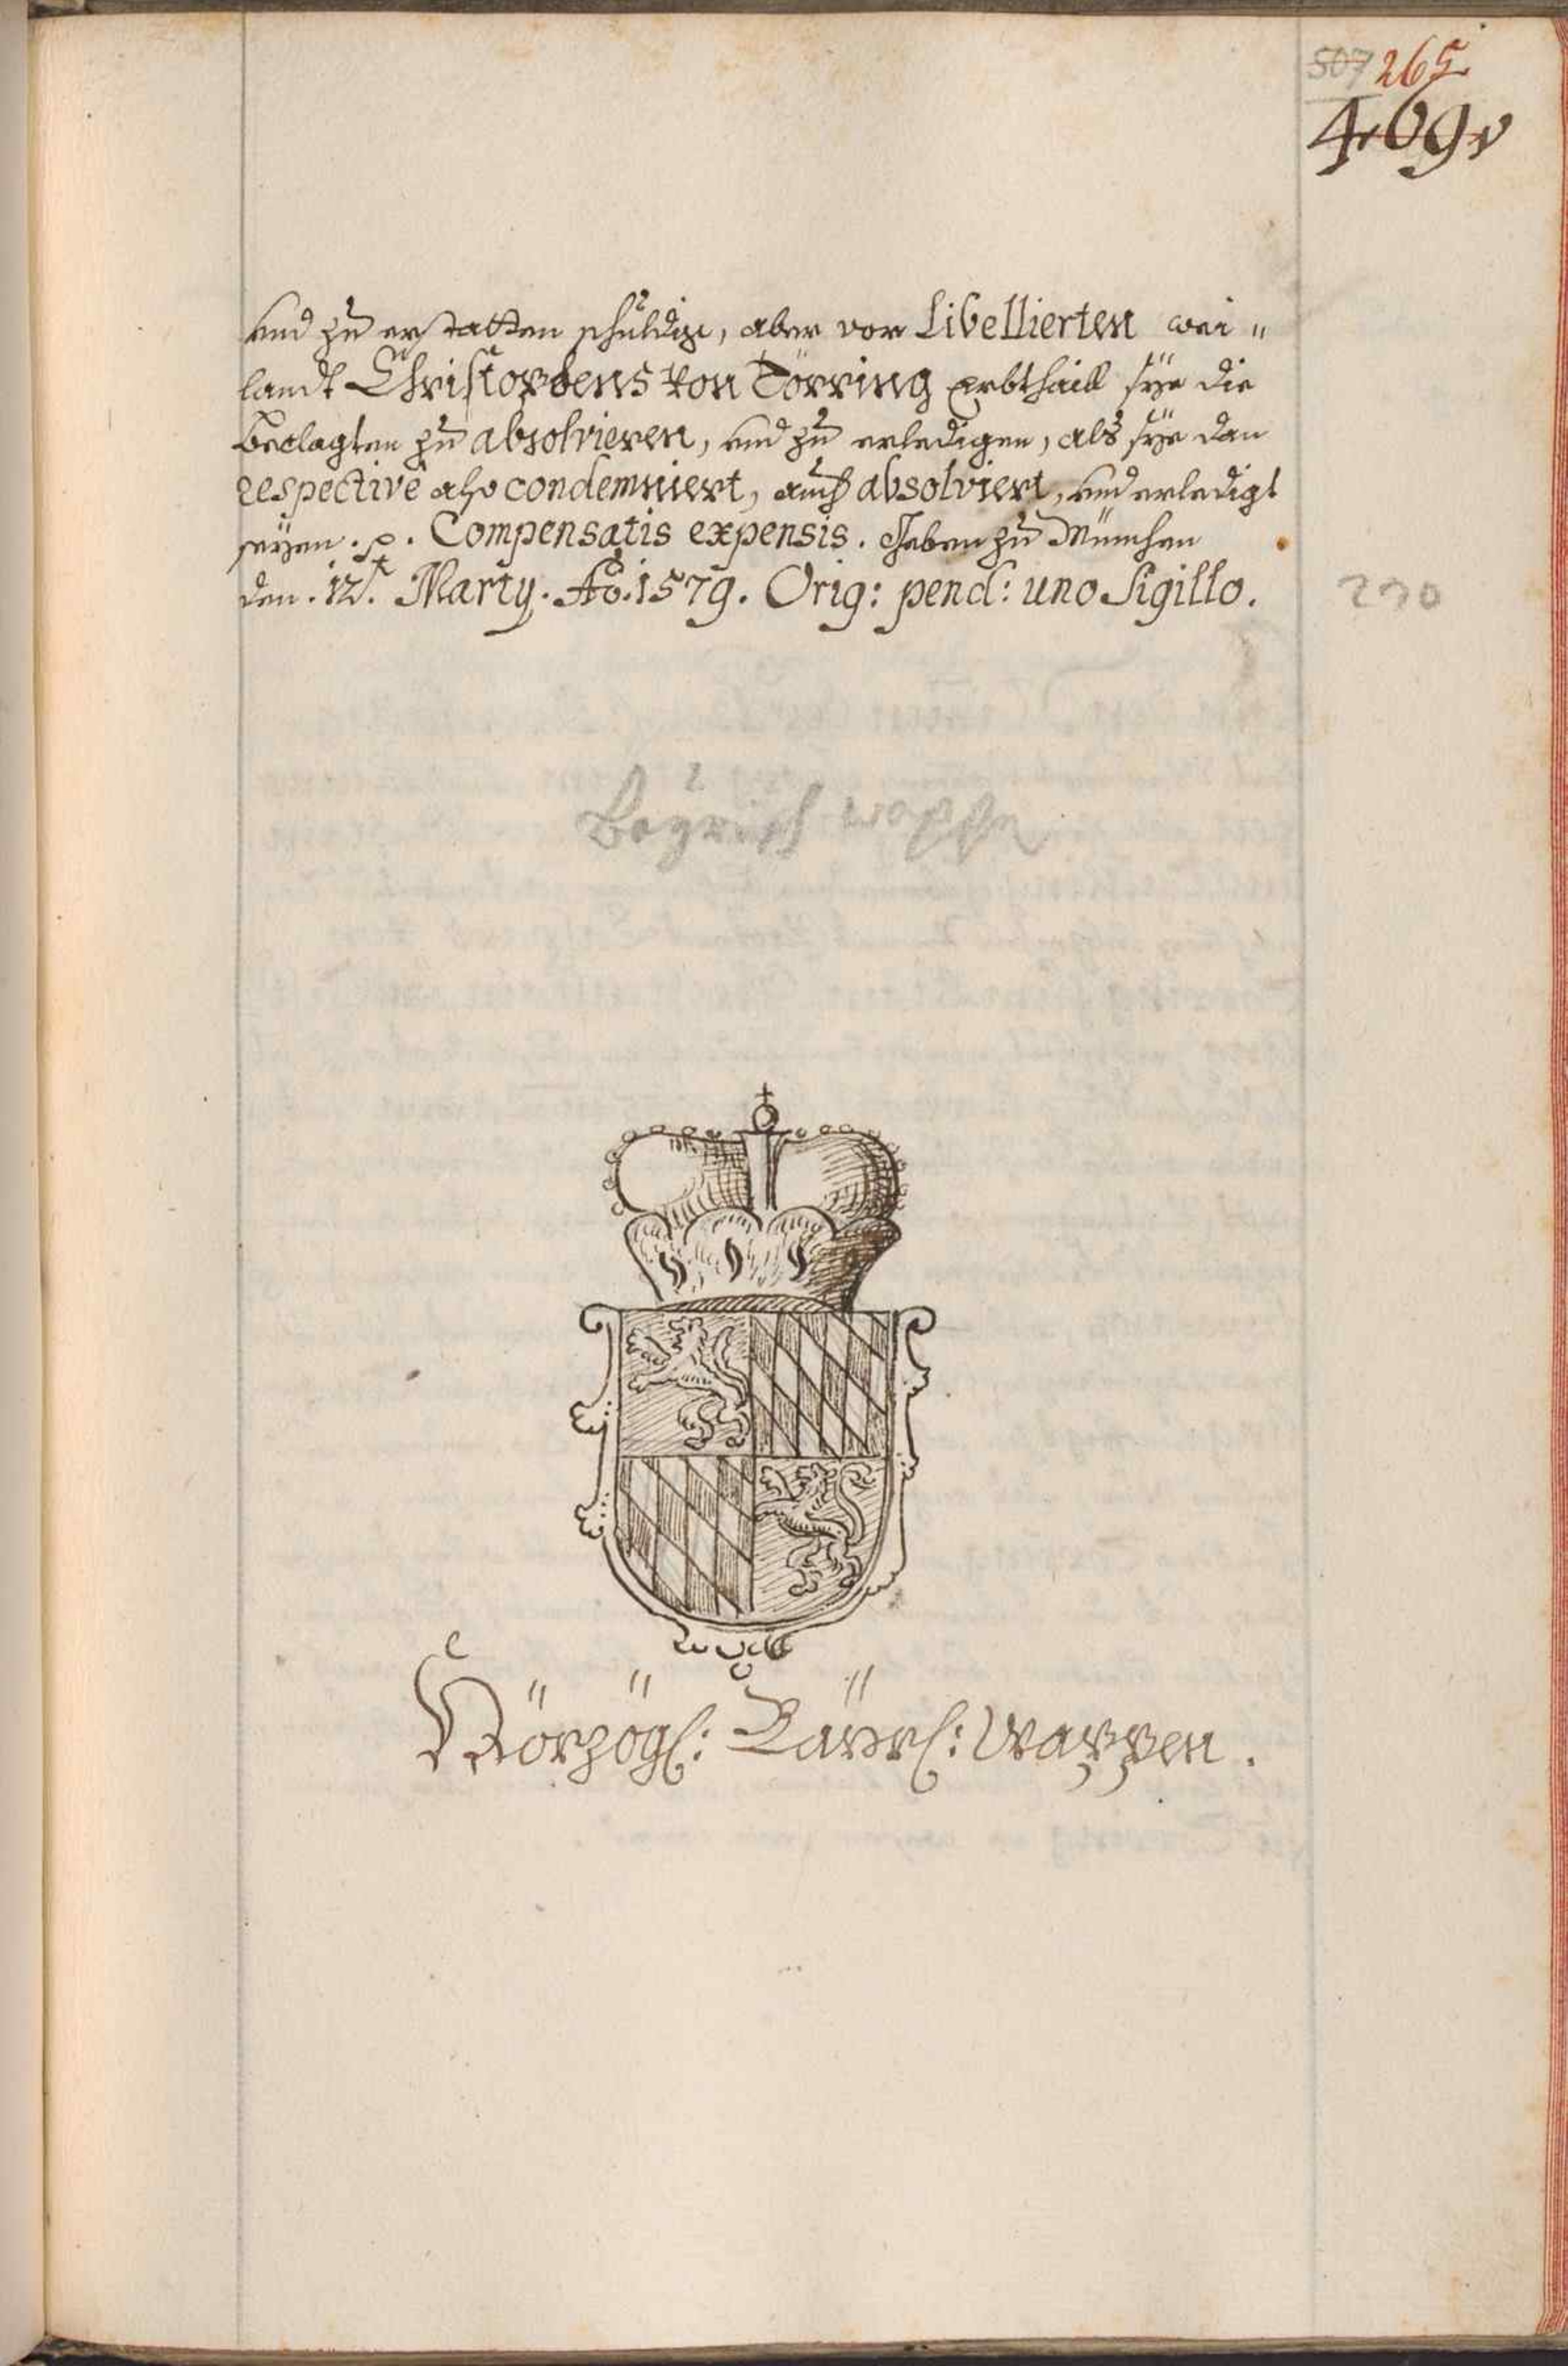 507 265
409
und zu erstatten schuldig, aber von Libellierten wei„
landt Christophens von Törring Erbthaill sÿe die
Beclagten zu absolvieren, und zu erledigen, als sÿe dan
respective also condemniert, auch absolviert, und erledigt
seÿen. p. Compensatis expensis. Geben zu München
den. 12. Marty. Aō. 1579. Orig: pend: uno Sigillo.
230
Bayrisch wappen
Hörzögl: Bäÿrl: Wappen.